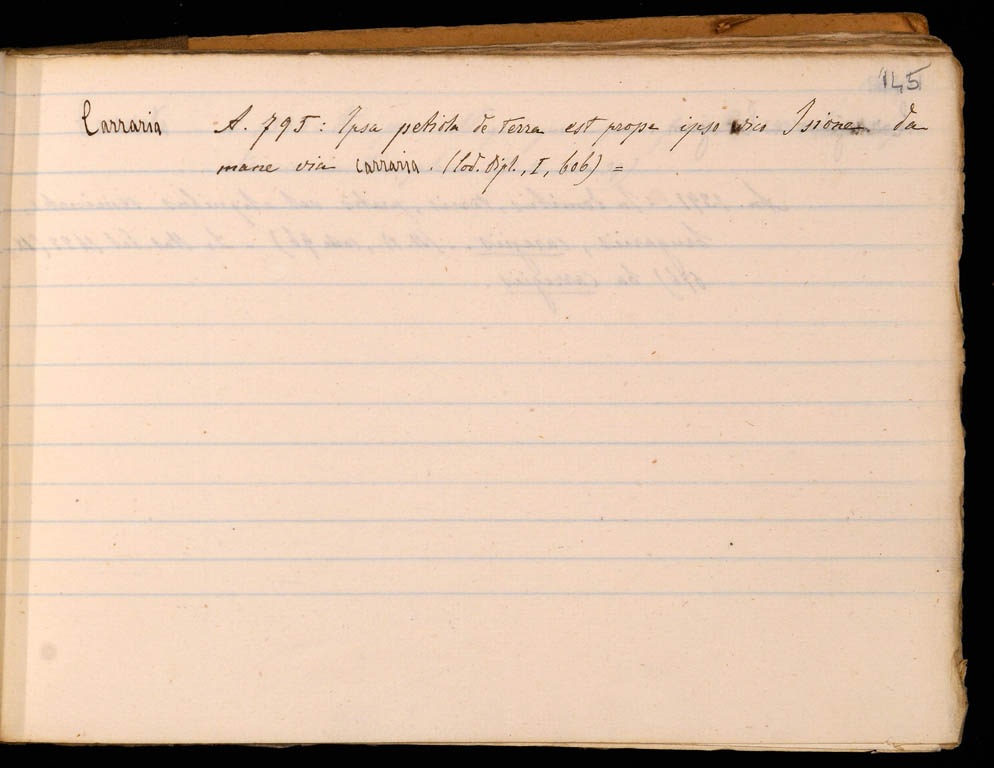 145
Carraria A. 795: Ipsa petiola de terra est prope ipso vico Isione da
mane via carraria. (Cod. dipl., I, 606) =